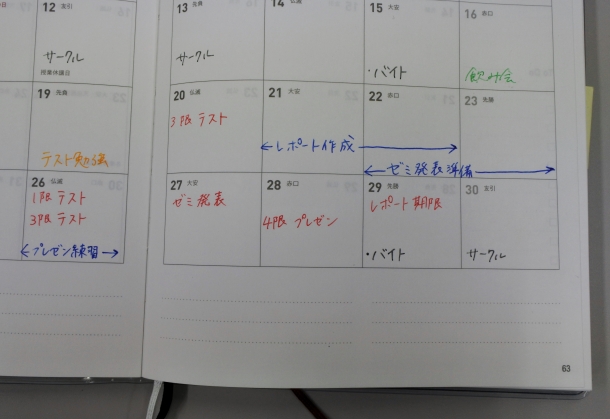 12 友引
サークル
授業休講日
13 先負
サークル
14 仏滅
15 大安
・バイト
16 赤口
飲み会
19 先負
テスト勉強
20 仏滅
3限 テスト
21 大安
22 赤口
23 先勝
←レポート作成→
←ゼミ発表準備→
26 仏滅
1限 テスト
3限 テスト
←プレゼン練習→
27 大安
ゼミ発表
28 赤口
4限 プレゼン
29 先勝
レポート期限
・バイト
30 友引
サークル
63